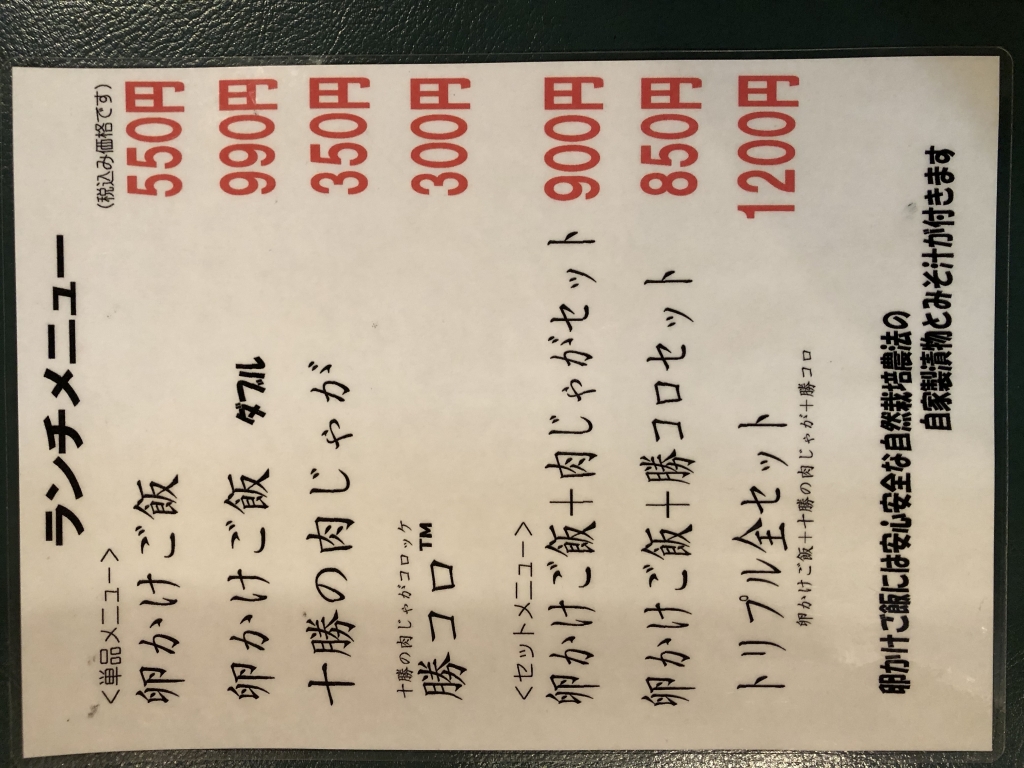 ランチメニュー
(税込み価格です)
<単品メニュー>
卵かけご飯 550円
卵かけご飯 ダブル 990円
十勝の肉じゃが 350円
十勝の肉じゃがコロッケ
勝コロ™ 300円
<セットメニュー>
卵かけご飯+肉じゃがセット 900円
卵かけご飯+勝コロセット 850円
トリプル全セット 1200円
卵かけご飯+十勝の肉じゃが+勝コロ
卵かけご飯には安心安全な自然栽培農法の
自家製漬物とみそ汁が付きます